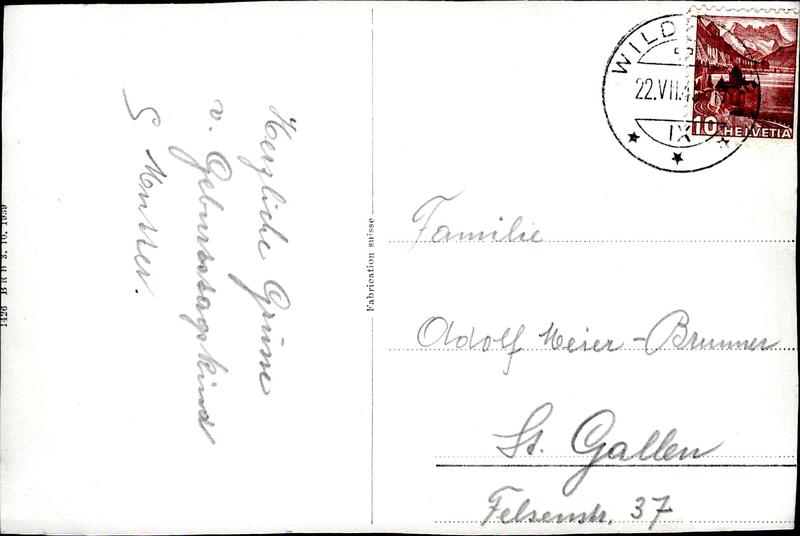 Herzliche Grüsse
v. Geburtstagskind
S Mutter.
Fabrication suisse
1426 B R B 3. 10. 1939
WILD
22.VII.4
IX
10 HELVETIA
Familie
Adolf Meier-Brunner
St. Gallen
Felsenstr. 37